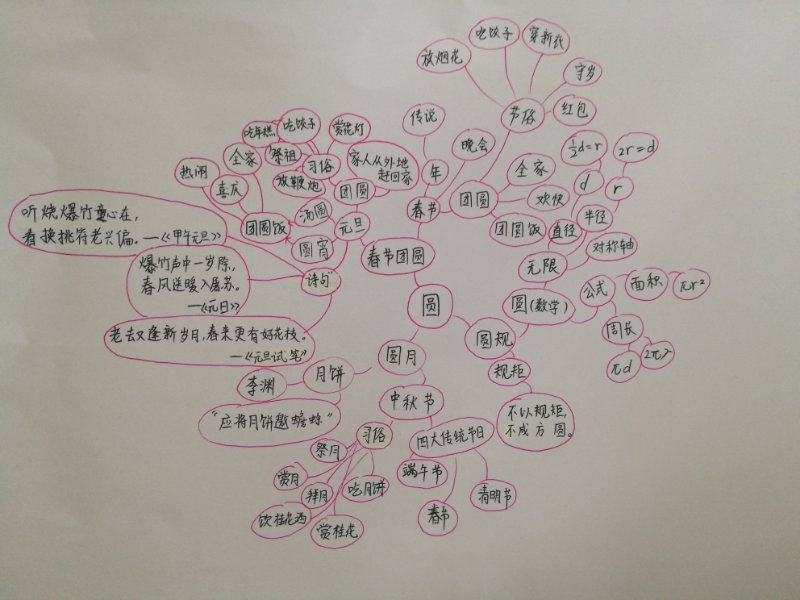 吃饺子
穿新衣
放烟花
守岁
节俗
红包
传说
晚会
½d=r
2r=d
吃年糕
吃饺子
赏花灯
全家
祭祖
习俗
家人从外地
赶回家
热闹
喜庆
放鞭炮
团圆
年
团圆
全家
欢快
d
r
春节
团圆饭
直径
半径
对称轴
听烧爆竹童心在,
看换桃符老兴偏。—《甲午元旦》
团圆饭
汤圆
元旦
圆宵
春节团圆
无限
爆竹声中一岁除,
春风送暖入屠苏。
—《元日》
诗句
圆
圆(数学)
公式
面积
πr²
周长
πd
2πr
老去又逢新岁月,春来更有好花枝。
—《元旦试笔》
圆月
圆规
规矩
月饼
李渊
中秋节
不以规矩,
不成方圆。
“应将月饼邀蟾蜍”
习俗
四大传统节日
祭月
赏月
拜月
吃月饼
饮桂花酒
赏桂花
端午节
春节
清明节